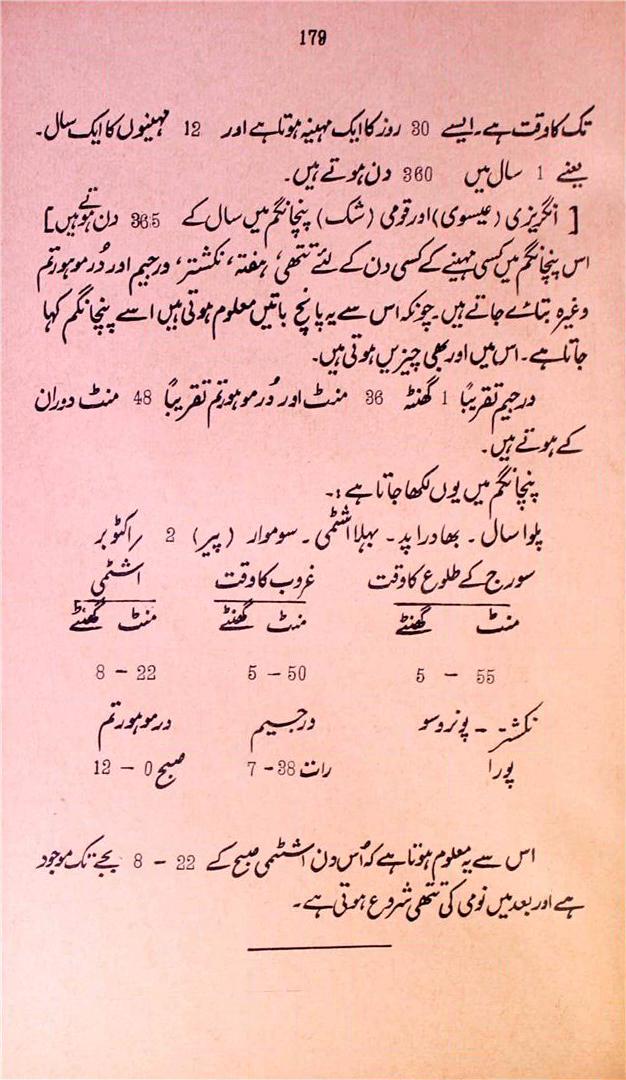 179
تک کا وقت ہے۔ ایسے 30 روز کا ایک مہینہ ہوتا ہے اور 12 مہینوں کا ایک سال۔
یعنے 1 سال میں 360 دن ہوتے ہیں۔
[ انگریزی (عیسوی) اور قومی (شک) پنچانگم میں سال کے 365 دن ہوتے ہیں]
اس پنچانگم میں کسی مہینے کے کسی دن کے لئے تتھی، ہفتہ، نکشتر، ورجیم اور دُرموہورتم
وغیرہ بتائے جاتے ہیں۔ چونکہ اس سے یہ پانچ باتیں معلوم ہوتی ہیں اسے پنچانگم کہا
جاتا ہے۔ اس میں اور بھی چیزیں ہوتی ہیں۔
ورجیم تقریباً 1 گھنٹہ 36 منٹ اور دُرموہورتم تقریباً 48 منٹ دوران
کے ہوتے ہیں۔
پنچانگم میں یوں لکھا جاتا ہے :۔
پلوا سال ۔ بھادراپد ۔ بہلا اشٹمی ۔ سوموار (پیر) 2 /اکٹوبر
سورج کے طلوع کا وقت غروب کا وقت اشٹمی
منٹ گھنٹے منٹ گھنٹے منٹ گھنٹے
5 – 55 5 – 50 8 – 22
نکشتر ۔ پونروسو ورجیم درموہورتم
پورا رات 38 – 7 صبح 0 – 12
اس سے یہ معلوم ہوتا ہے کہ اُس دن اشٹمی صبح کے 22 – 8 بجے تک موجود
ہے اور بعد میں نومی کی تتھی شروع ہوتی ہے۔